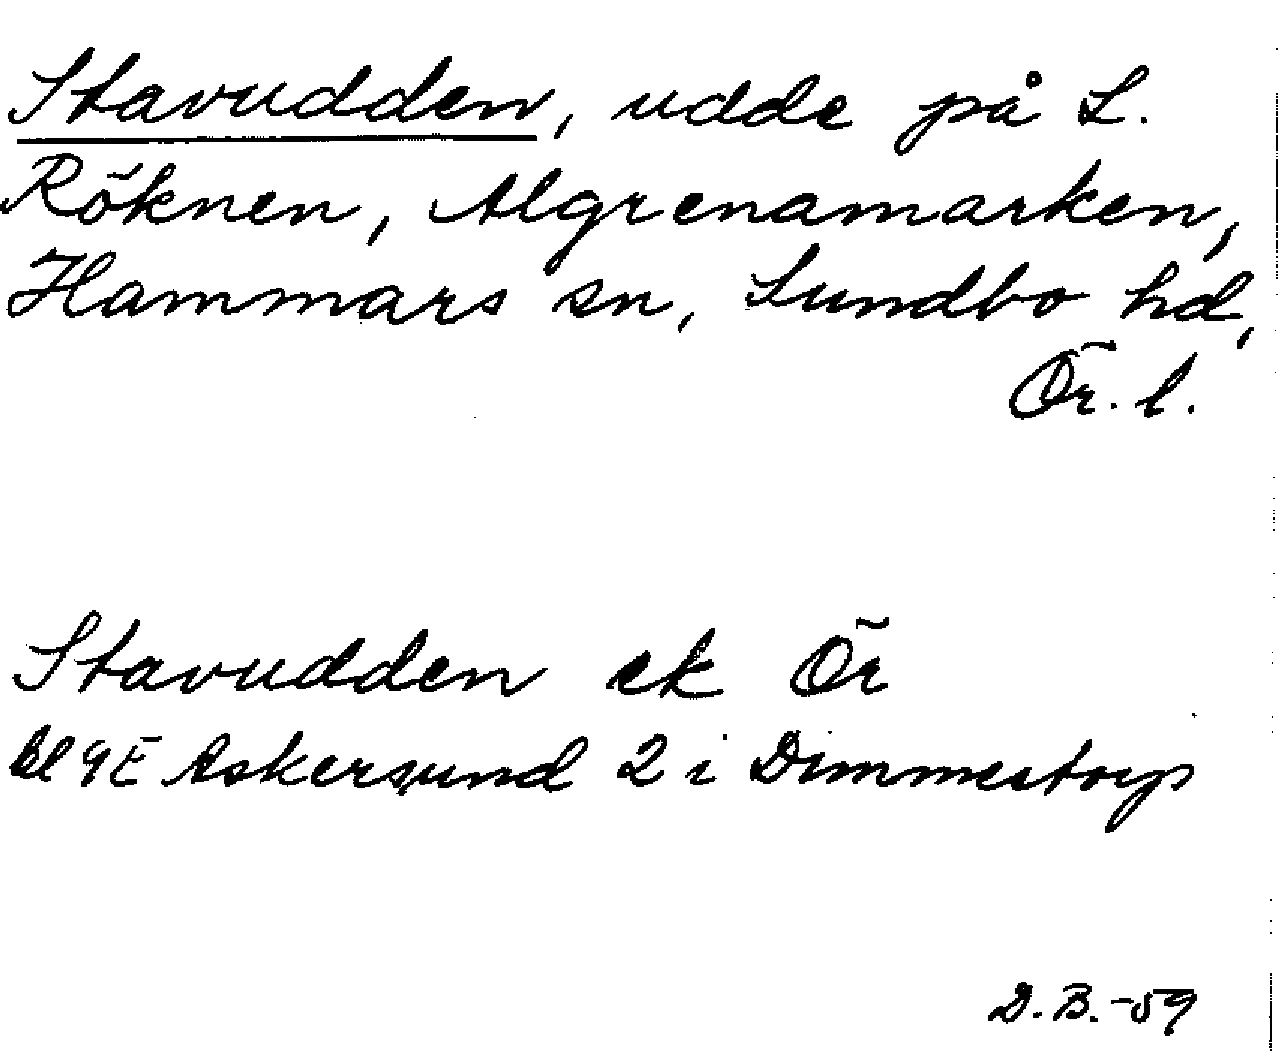 Stavudden, udde på L.
Röknen, Algrenamarken,
Hammars sn, Sundbo hd,
Ör. l.
Stavudden ek Ör
bl 9E Askersund 2 i Dimmestorp
D.B.-59